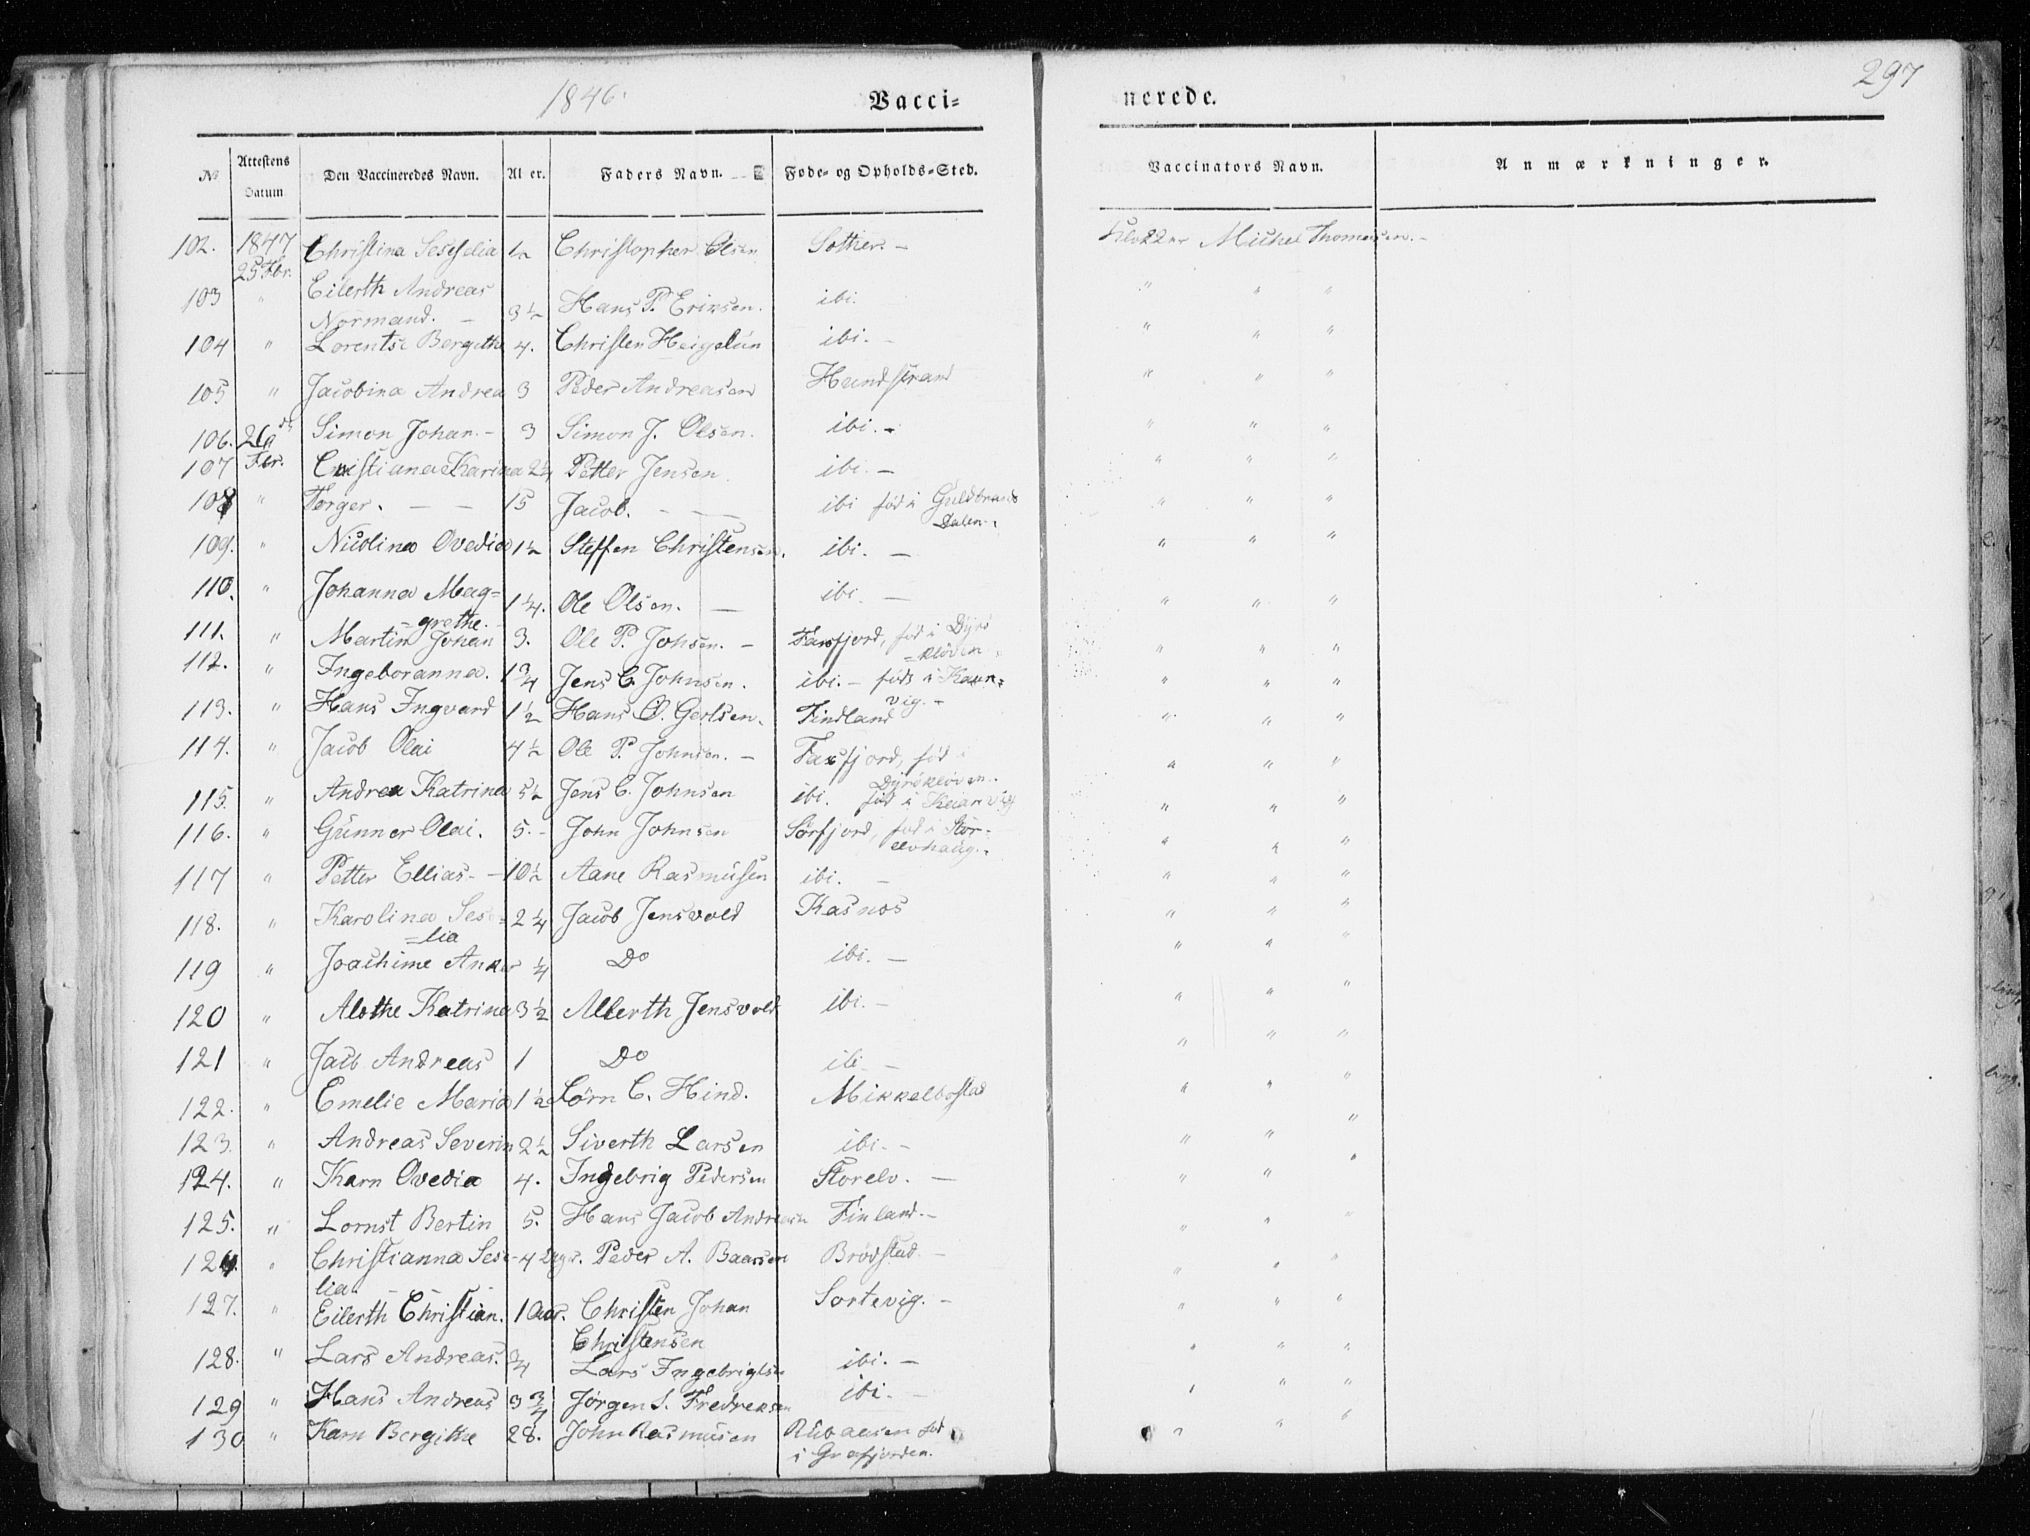 1846.
Vacci=
nerede.
297
No Attestens Datum Den Vaccineredes Navn. Al er. Faders Navn. Føde= og Opholds=Sted. Vaccinators Navn. Anmærkninger.
102. 1847 25 Fbr. Christina Seseselia ½ Christopher Olsen Sother. - Klokker Michel Thomesen. -
103 " Eilerth Andreas Normand. - 3½ Hans P. Eriksen. ibi. " " "
104 " Lorentse Bergithe 4. Christen Heigelün ibi. - " " "
105 " Jacobina Andrea 3 Peder Andreasen Hundstrand " " "
106. 26de Simon Johan. - 3 Simon J. Olsen. ibi. - " " "
107 Fbr. Cristiana Karina 2¼ Petter Jensen. ibi. - " " "
108 " Torger. - - 15 Jacob. - - - ibi fød i Guldbrands Dalen. " " "
109. " Nicolina Ovedia 1½ Steffen Christensen. ibi. - " " "
110. " Johanna Mag= =grethe. 1¼. Ole Olsen. - ibi. - " " "
111. " Martin Johan 3. Ole P. Johsen. - Faxfjord, fød i Dyrs =kløven " " "
112. " Ingeboranna. 1¾ Jens C. Johnsen. ibi. - fød i Kaar= vig. - " " "
113. " Hans Ingvard 1½ Hans O. Gerlsen. Findland " " "
114. " Jacob Olai 4½ Ole P. Johnsen. - Faxfjord, fød i Dyrskløven. " " "
115. " Andrea Katrina 5½ Jens C. Johnsen ibi. fød i Kaarvig " " "
116. " Günner Olai. 5. - John Johnsen Sørfjord, fød i Stor= elvhaug. " " "
117 " Petter Ellias. - 10½ Aane Rasmüsen ibi. - " " "
118. " Karolina Ses= =lia 2¼ Jacob Jensvold Kasnos " " "
119 " Joachime Anker ¼ Do ibi. - " " "
120 " Alethe Katrina 3½ Allerth Jensvold ibi. - " " "
121 " Jacb Andreas 1 Do ibi. - " " "
122. " Emelie Maria 1½ Cørn C. Hind. Mikkelbostad " " "
123. " Andreas Severin 2½ Siverth Larsen ibi. - " " "
124. " Karn Ovedia 4. Indebrig Pedersen Storelv. - " " "
125. " Lornst Bertin 5. Hans Jacob Andreasn Finland. - " " "
126. " Christianna Sese= lia. - - 4 Dgr. Peder A. Baarsen Brødstad. - " " "
127. " Eilerth Christian. 1 Aar. Christen Johan Christensen Sortevig. - " " "
128. " Lars Andreas. ¾ Lars Ingebrigtsen ibi. - " " "
129 " Hans Andreas 3¾ Jørgen S. Fredreksen ibi. - " " "
130 " Karn Bergithe 28. John Rasmüsen Rübaasen fød i Grafjorden. " " "